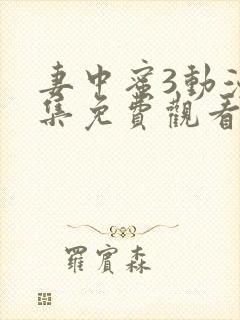 妻中蜜3動漫
集免費觀看
羅賓森